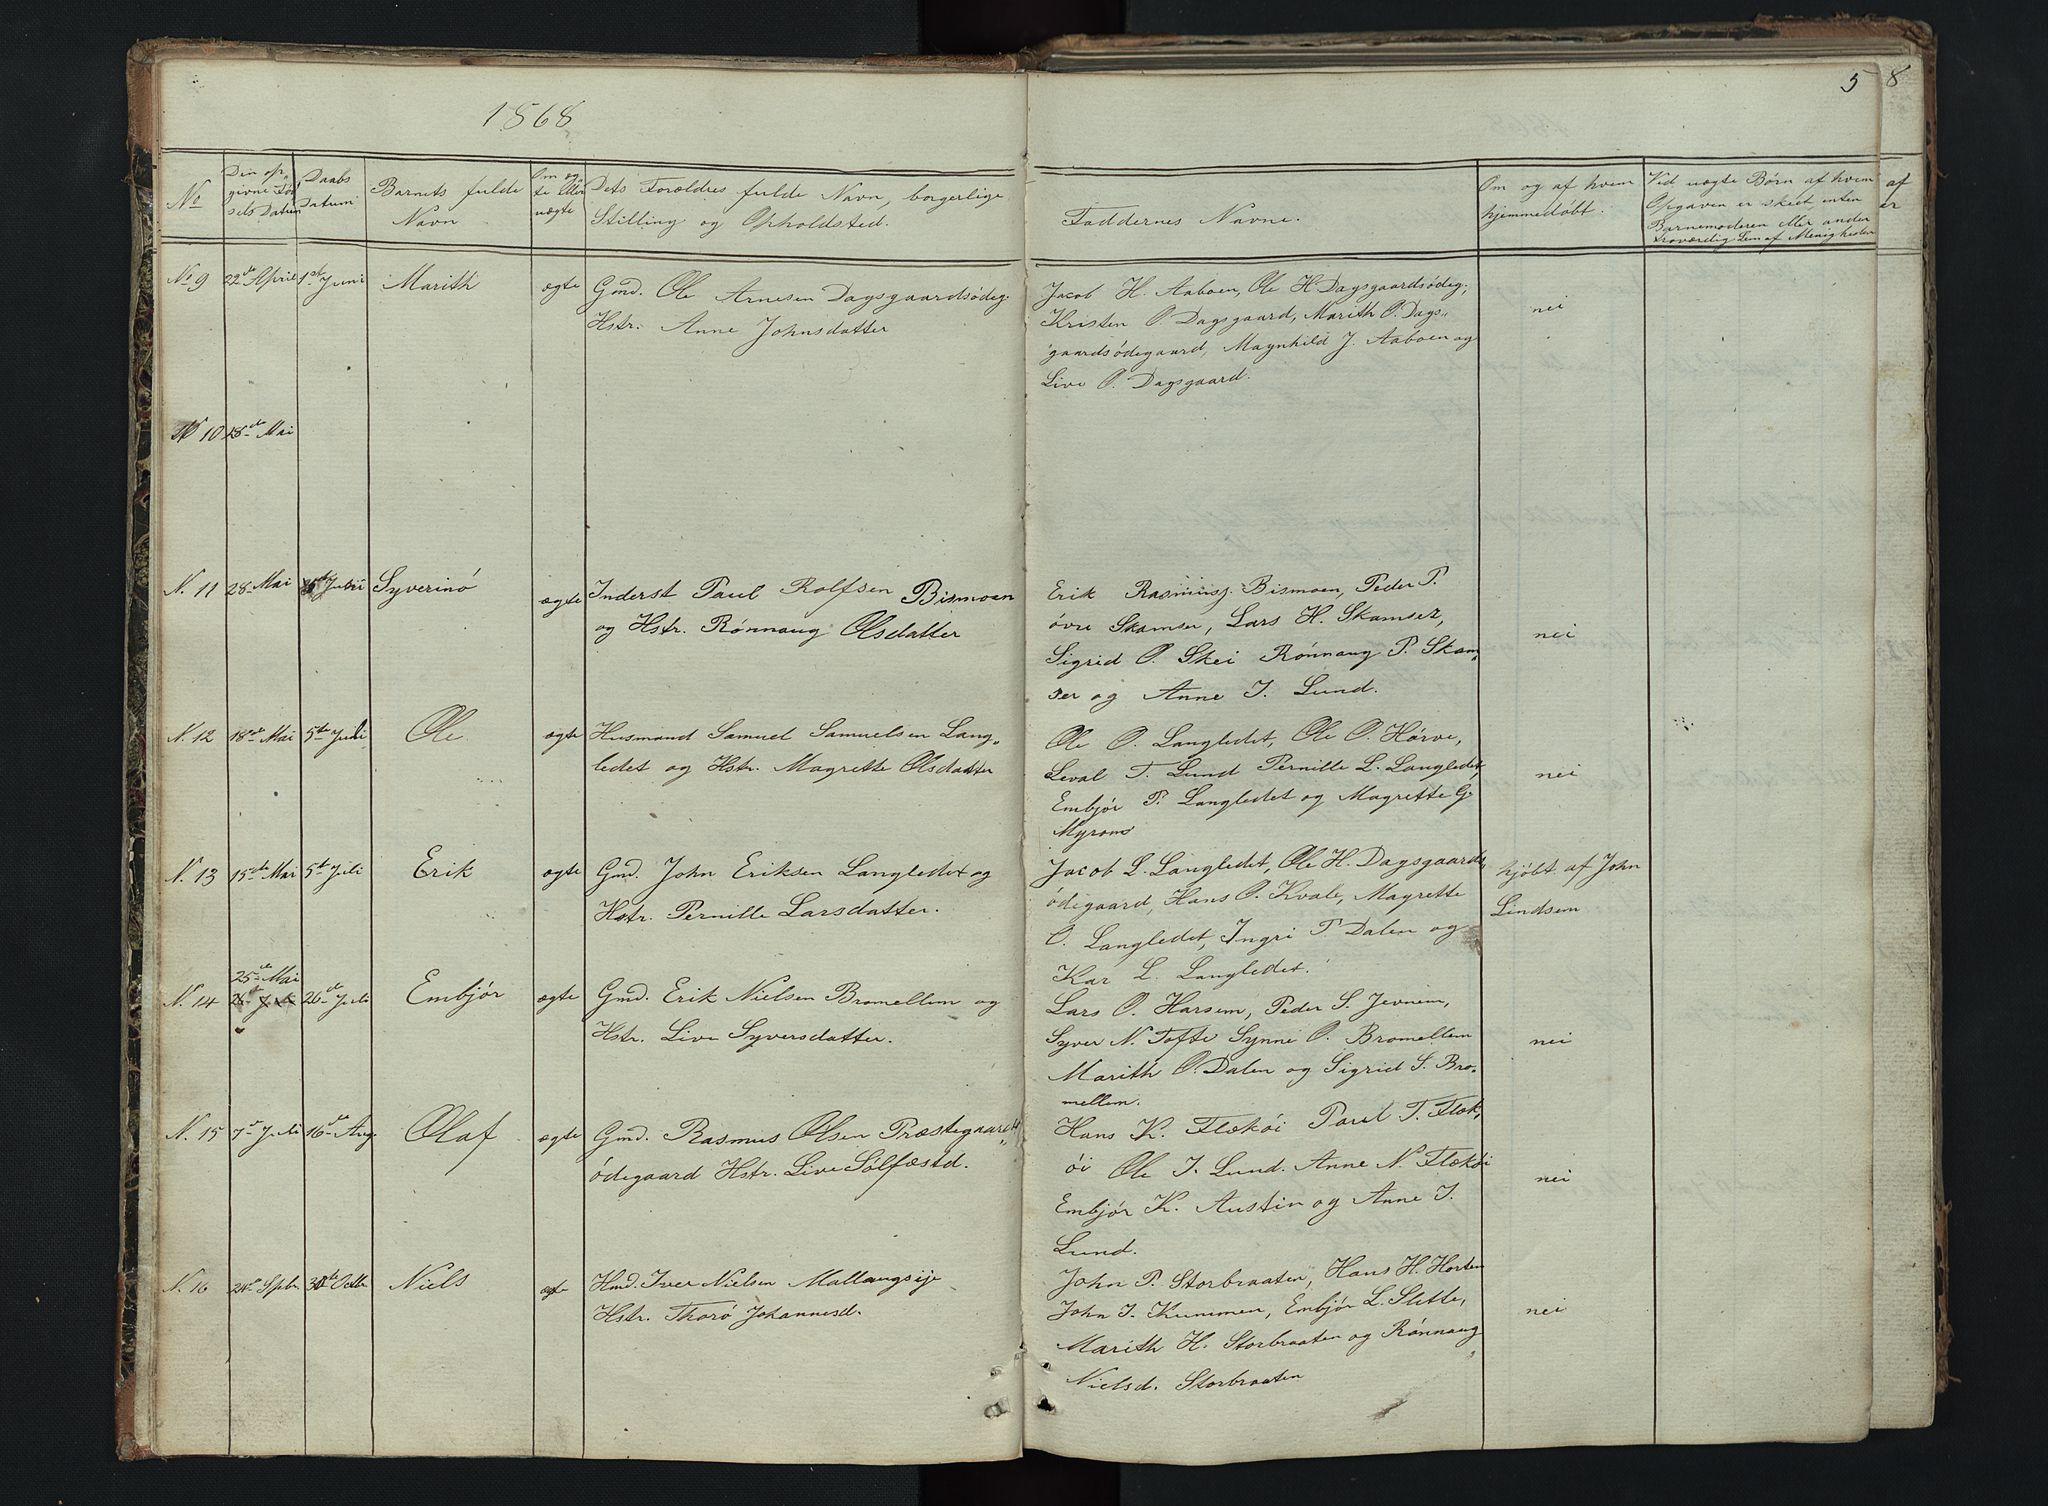 1868
5
8
No
Den op-
givne Fød-
sels Datum
Daabs
Datum
Barnets fulde
Navn
Om æg-
te eller
uægte
Dets Forældres fulde Navn, borgerlige
Stilling og Opholdsted.
Faddernes Navne.
Om og af hvem
hjemmedøbt.
Ved uægte Børn af hvem
Opgaven er skeet, enten
Barnemoderen eller anden
troværdig Lem af Menigheden
af
er
No 9 22de April 1st Juni Marith ægte Gmd. Ole Arnesen Dagsgaardsødeg.
Hstr. Anne Johnsdatter
Jacob H. Aaboen, Ole H. Dagsgaardsødeg.,
Kristen O. Dagsgaard, Marith O. Dags-
gaardsødegaard, Maynhild J. Aaboen og
Live O. Dagsgaard.
nei
N 10 28de Mai
N. 11 28 Mai Juli Syverinó ægte Inderst Paul Rolfsen Bismoen
og Hstr. Rønnaug Olsdatter
Erik Rasmusg. Bismoen, Peder P.
øvre Skamser, Lars H. Skamser,
Sigrid O. Skei Rónnaug P. Skam-
ser og Anne I. Lund.
nei
N. 12 18de Mai 5te Juli Ole ægte Husmand Samuel Samuelsen Lang-
ledet og Hstr. Magrette Olsdatter
Ole O. Langledet, Ole O. Hørve,
Leval T. Lund Pernille L. Langledet,
Embjør P. Langledet og Magrette G.
Myrom
nei
N. 13 15de Mai 5te Juli Erik ægte Gmd. John Eriksen Langledet og
Hstr. Pernille Larsdatter.
Jacob L. Langledet, Ole H. Dagsgaards-
ødegaard, Hans O. Kvale, Magrette
O. Langledet, Ingri P. Dalen og
Kar L. Langledet.
hjdbt. af John
Lindsem
25de Mai
N. 14 26de Juli Embjør ægte Gmd. Erik Nielsen Bromellem og
Hstr. Live Syversdatter.
Lars O. Harsem, Peder S. Jevnem,
Syver N. Tofte Synne O. Bromellem
Marith O. Dalen og Sigrid S. Bro-
mellem.
nei
N. 15 7de Juli 16de Aug. Olaf ægte Gmd. Rasmus Olsen Præstegaards-
ødegaard Hstr. Live Sølfæstd.
Hans K. Flækøi Paul T. Flæk-
øi Ole I. Lund. Anne N. Flækøi
Embjør K. Austin og Anne I.
Lund.
nei
N. 16 24de Spbr. Octbr Niels ægte Hmd. Iver Nielsen Mallangseje
Hstr. Thorø Johannesd.
John P. Storbraaten, Hans H. Horten
John I. Kummen, Embjør L. Slette,
Marith H. Storbraaten og Rønnaug
Nielsd. Storbraaten
nei